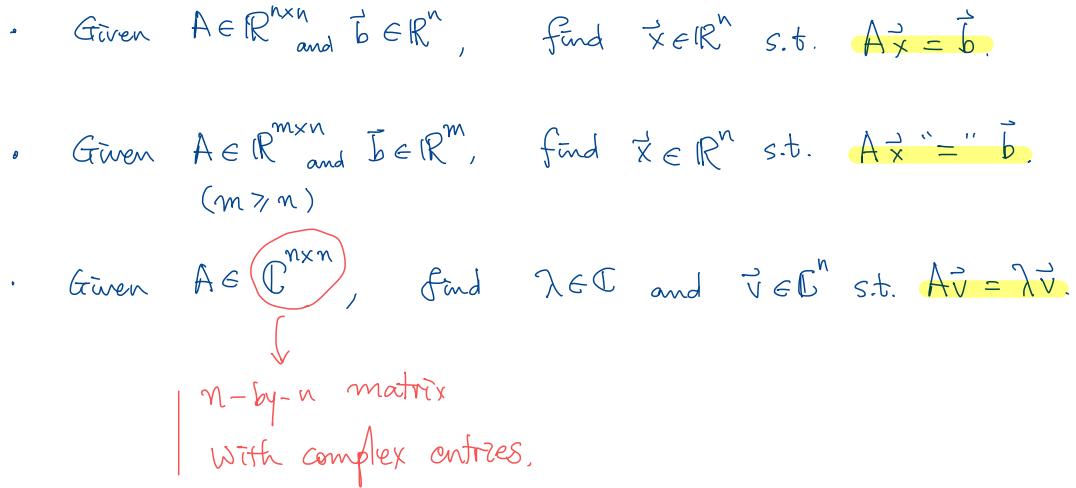 · Given A ∈ ℝⁿˣⁿ and b⃗ ∈ ℝⁿ, find x⃗ ∈ ℝⁿ s.t. Ax⃗ = b⃗.
· Given A ∈ ℝᵐˣⁿ and b⃗ ∈ ℝᵐ, find x⃗ ∈ ℝⁿ s.t. Ax⃗ "=" b⃗.
(m ⩾ n)
· Given A ∈ ℂⁿˣⁿ, find λ ∈ ℂ and v⃗ ∈ ℂⁿ s.t. Av⃗ = λv⃗.
n-by-n matrix
with complex entries.